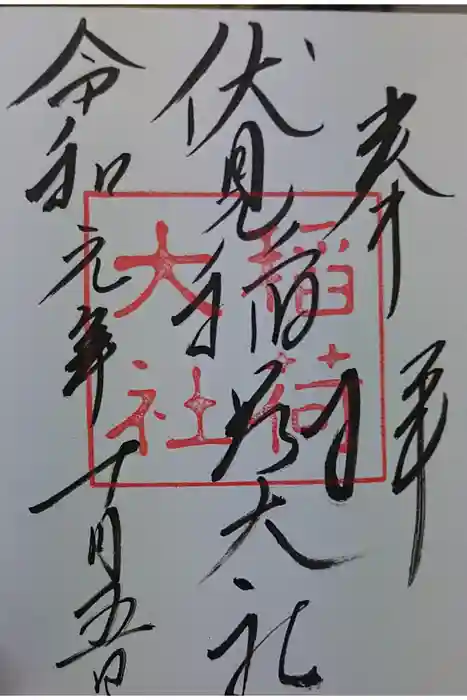 奉拝
伏見稲荷大社
令和元年十月五日
稲荷
大社